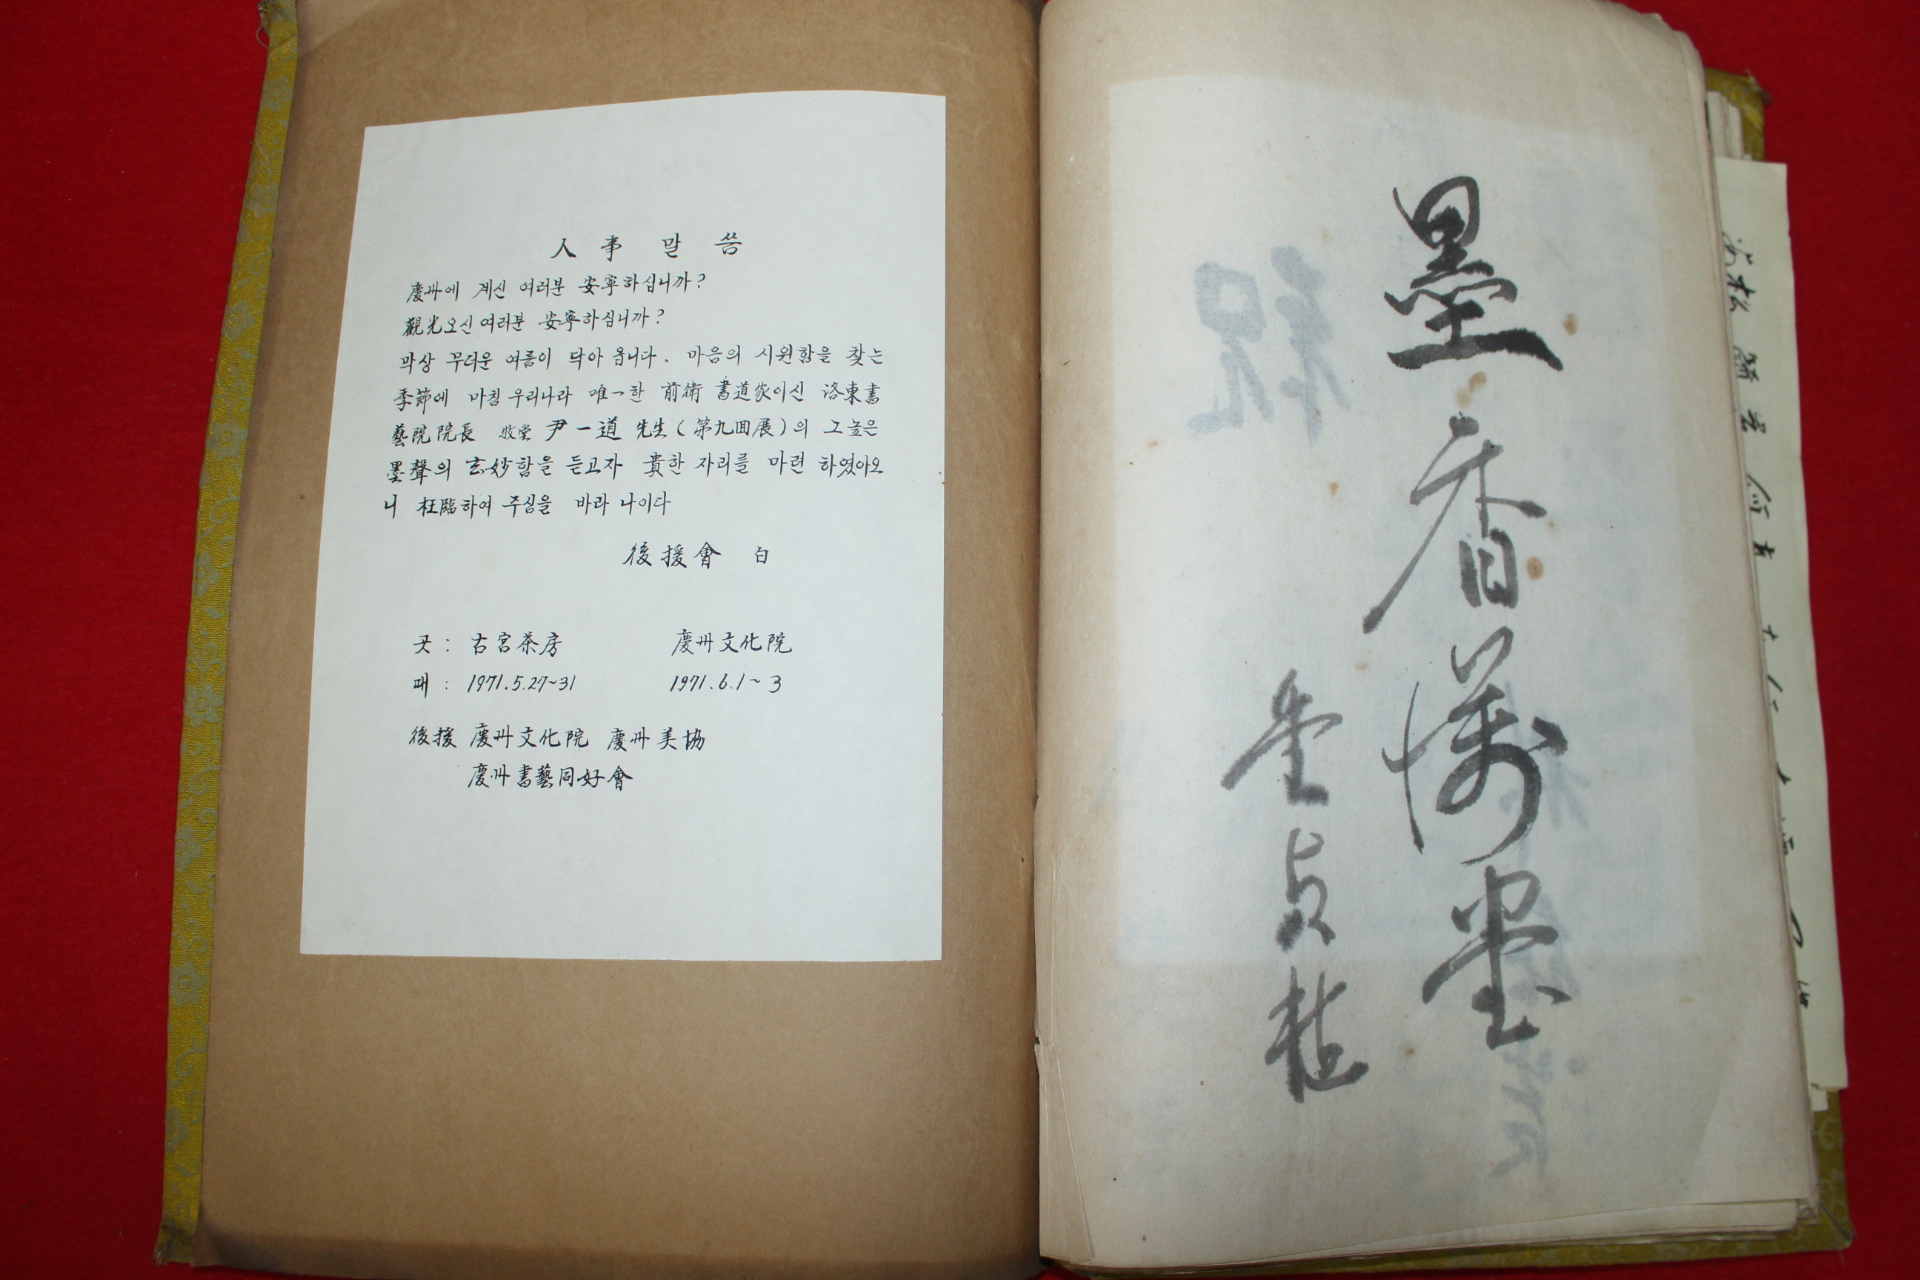 人事 말씀
慶州에 계신 여러분 安寧하십니까?
觀光오신 여러분 安寧하십니까?
막상 무더운 여름이 닥아 옵니다. 마음의 시원함을 찾는
季節에 마침 우리나라 唯一한 前術 書道家이신 洛東書
藝院院長 牧堂 尹一道 先生(第九回展)의 그 높은
墨聲의 玄妙함을 듣고자 貴한 자리를 마련 하였아오
니 枉臨하여 주심을 바라 나이다
後援會 白
곳: 古宮茶房 慶州文化院
때: 1971.5.27~31 1971.6.1~3
後援 慶州文化院 慶州美協
慶州書藝同好會
墨香萬里